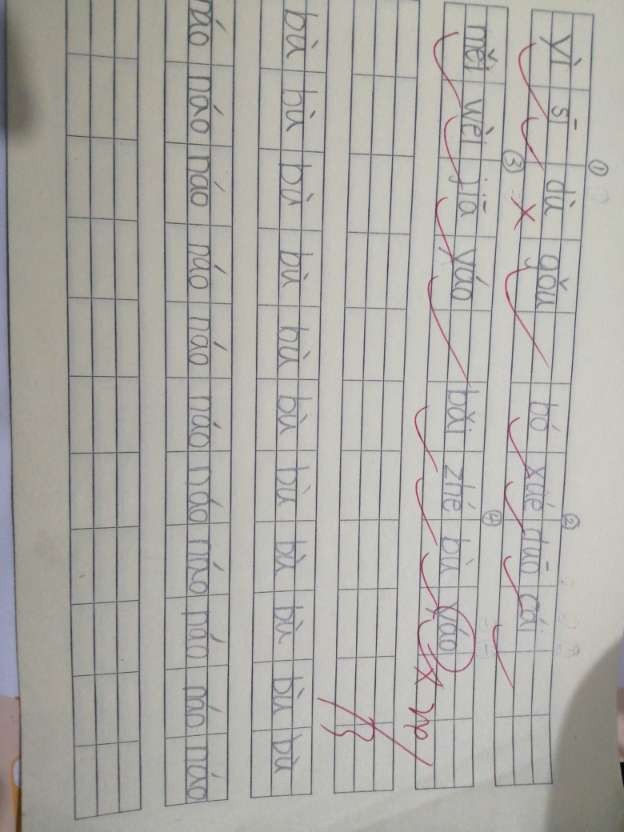 ① ②
yì sī dù gǒu bó xué duō cái
③ ④
měi wèi jiā yáo bǎi zhé bù yáo
bù bù bù bù bù bù bù bù bù bù bù
náo náo náo náo náo náo náo náo náo náo náo